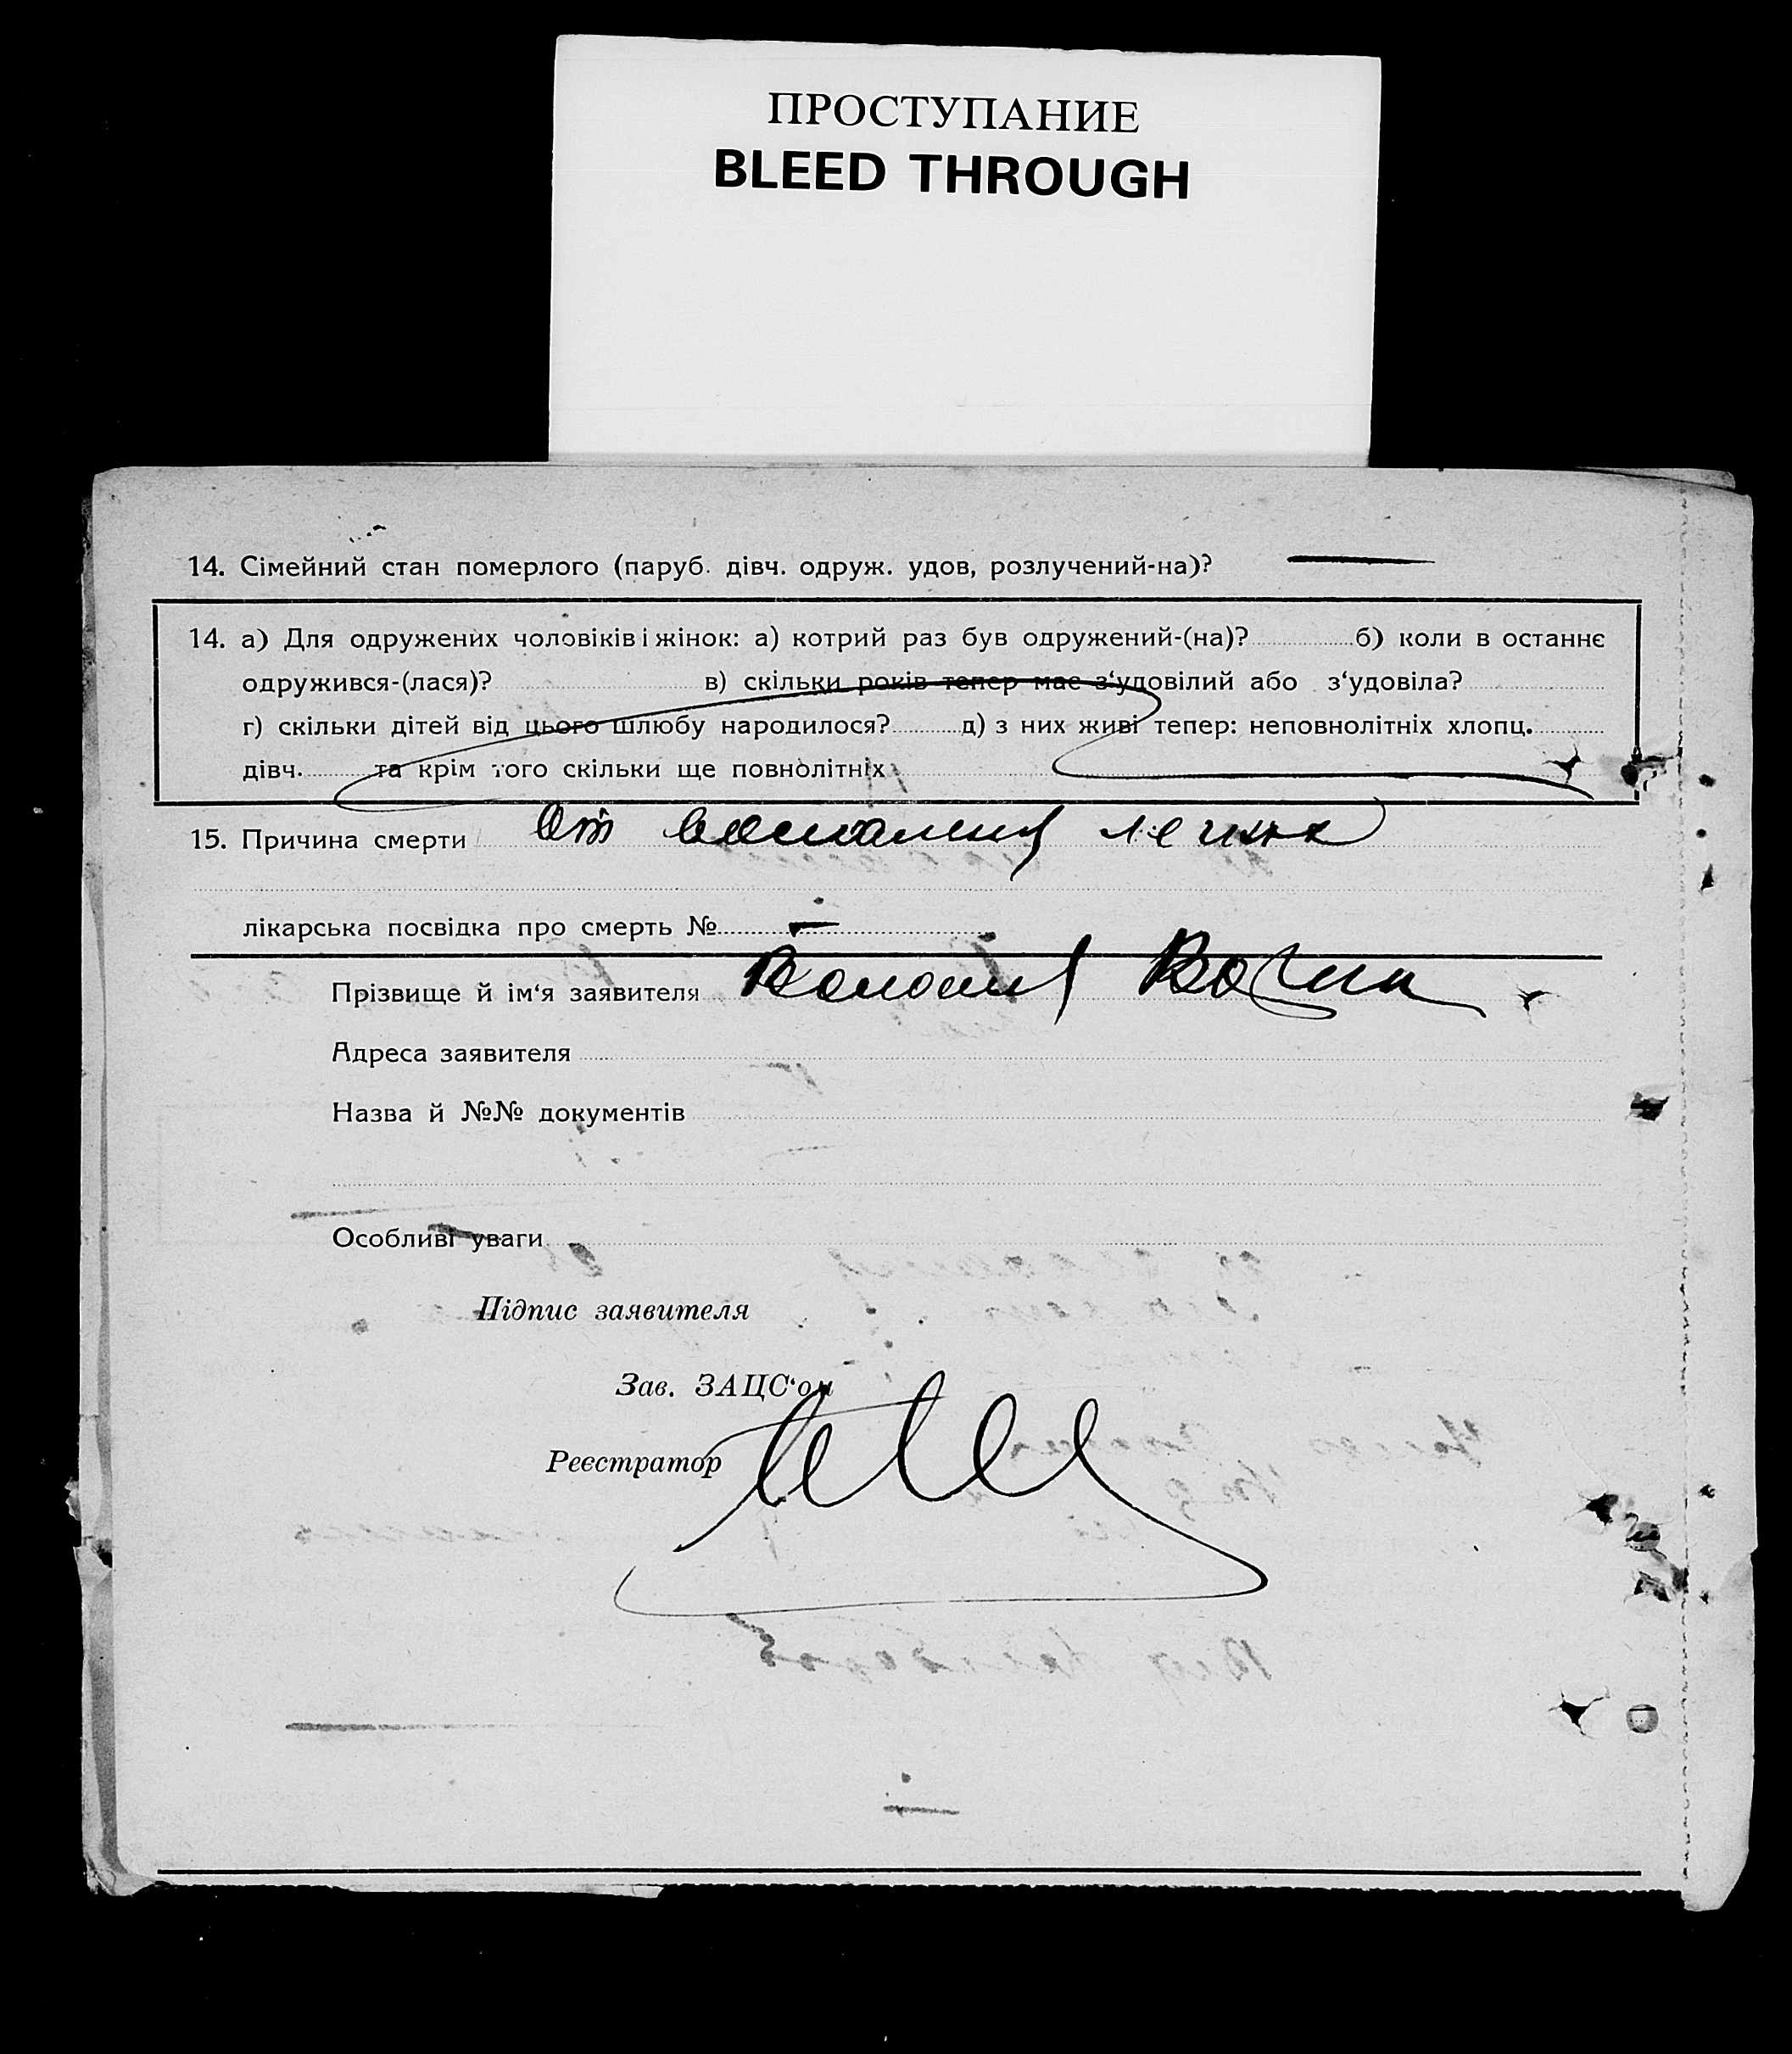 ПРОСТУПАНИЕ
BLEED THROUGH
14. Сімейний стан померлого (паруб. дівч. одруж. удов, розлучений-на)?
14. а) Для одружених чоловіків і жінок: а) котрий раз був одружений-(на)? б) коли в останнє
одружився-(лася)? в) скільки років тепер має з‘удовілий або з‘удовіла?
г) скільки дітей від цього шлюбу народилося? д) з них живі тепер: неповнолітніх хлопц.
дівч. та крім того скільки ще повнолітніх
15. Причина смерти От воспаления легких
лікарська посвідка про смерть №
Прізвище й ім‘я заявителя
Адреса заявителя
Назва й №№ документів
Особливі уваги
Підпис заявителя
Зав. ЗАЦС‘ом
Реєстратор